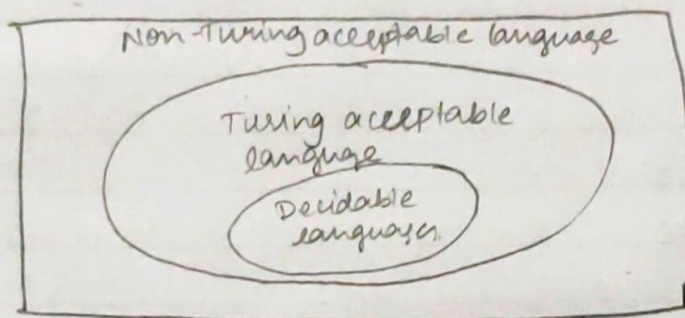 Non-Turing acceptable language
Turing acceptable
language
Decidable
languages